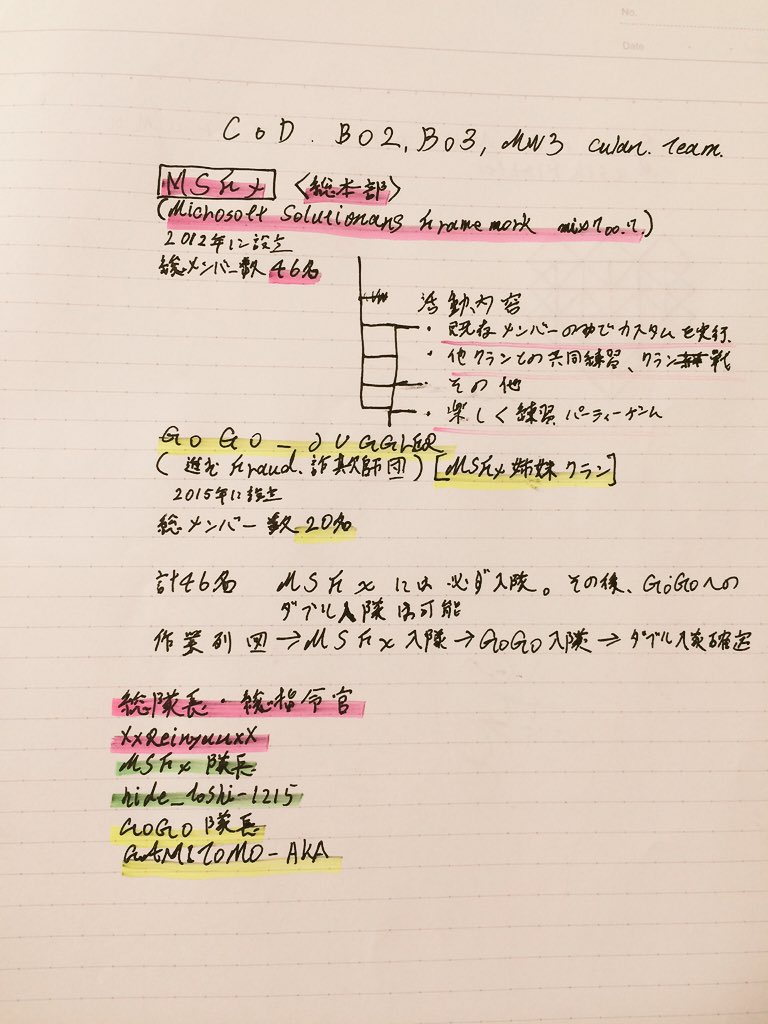 No.
Date
CoD. BO2, BO3, MW3 culan. Team.
MSFx 〈総本部〉
(Microsoft Solutionans framework mix
2012年に設立
総メンバー数 46名
活動内容
・既存メンバーの中でカスタムを実行
・他クランとの共同練習、クラン戦
・その他
・楽しく練習 パーティーゲーム
GOGO_JUGGLER
(進む Fraud. 詐欺師団) [MSFx姉妹クラン]
2015年に設立
総メンバー数 20名
計46名 MSFxには必ず入隊。その後、GoGoへの
ダブル入隊は可能
作業列図→MSFx入隊→GoGo入隊→ダブル入隊確定
総隊長・総指令官
XxReinyuuxX
MSFx 隊長
hide_toshi-1215
GoGo 隊長
GAMITOMO-AKA